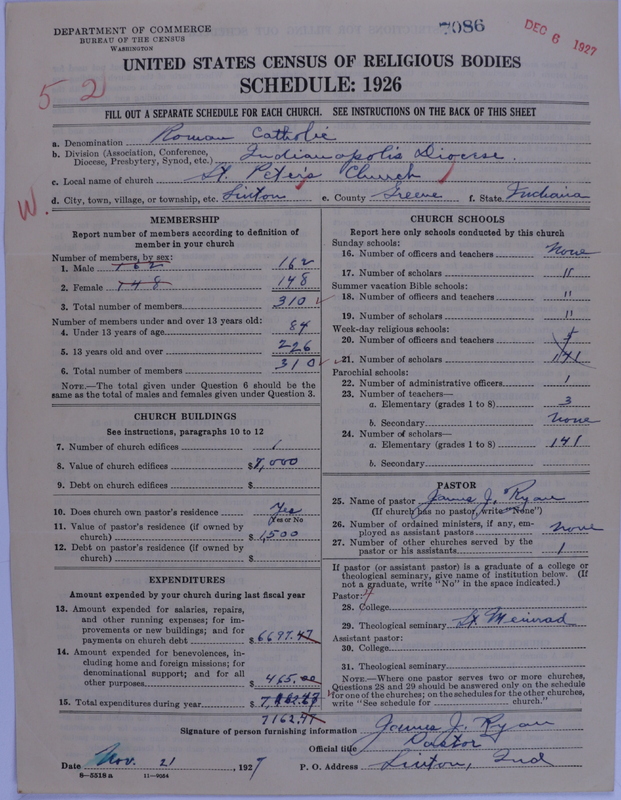 7086
DEC 6 1927
DEPARTMENT OF COMMERCE
BUREAU OF THE CENSUS
WASHINGTON
UNITED STATES CENSUS OF RELIGIOUS BODIES
SCHEDULE: 1926
52
FILL OUT A SEPARATE SCHEDULE FOR EACH CHURCH. SEE INSTRUCTIONS ON THE BACK OF THIS SHEET
a. Denomination Roman Catholic
b. Division (Association, Conference, Diocese, Presbytery, Synod, etc.) Indianapolis Diocese
c. Local name of church St. Peter's Church
d. City, town, village, or township, etc. Linton e. County Greene f. State Indiana
W.
MEMBERSHIP
Report number of members according to definition of
member in your church
Number of members, by sex:
1. Male 162 162
2. Female 148 148
3. Total number of members 310
Number of members under and over 13 years old:
4. Under 13 years of age 84
5. 13 years old and over 226
6. Total number of members 310
NOTE.—The total given under Question 6 should be
same as the total of males and females given under Question 3.
CHURCH BUILDINGS
See instructions, paragraphs 10 to 12
7. Number of church edifices 1
8. Value of church edifices $ 7,000
9. Debt on church edifices $
10. Does church own pastor's residence? Yes
Yes or No
11. Value of pastor's residence (if owned by
church) $ 1,500
12. Debt on pastor's residence (if owned by
church) $
EXPENDITURES
Amount expended by your church during last fiscal year
13. Amount expended for salaries, repairs,
and other running expenses; for im-
provements or new buildings; and for
payments on church debt $ 6697.47
14. Amount expended for benevolences, in-
cluding home and foreign missions; for
denominational support; and for all
other purposes $ 465.00
15. Total expenditures during year $
7162.47
CHURCH SCHOOLS
Report here only schools conducted by this church
Sunday schools:
16. Number of officers and teachers None
17. Number of scholars "
Summer vacation Bible schools:
18. Number of officers and teachers "
19. Number of scholars "
Week-day religious schools:
20. Number of officers and teachers
21. Number of scholars 141
Parochial schools:
22. Number of administrative officers 1
23. Number of teachers—
a. Elementary (grades 1 to 8) 3
b. Secondary None
24. Number of scholars—
a. Elementary (grades 1 to 8) 141
b. Secondary
PASTOR
25. Name of pastor James J. Ryan
(If church has no pastor, write "None")
26. Number of ordained ministers, if any, em-
ployed as assistant pastors None
27. Number of other churches served by the
pastor or his assistants 1
If pastor (or assistant pastor) is a graduate of a college or
theological seminary, give name of institution below. (If
not a graduate, write "No" in the space indicated.)
Pastor:
28. College
29. Theological seminary St Meinrad
Assistant pastor:
30. College
31. Theological seminary
NOTE.—Where one pastor serves two or more churches,
Questions 28 and 29 should be answered only on the schedule
for one of the churches; on the schedules for the other churches,
write "See schedule for church."
Signature of person furnishing information James J. Ryan
Official title Pastor
Date Nov. 21, 1927 P. O. Address Linton, Ind
8—5518 a 11—9064